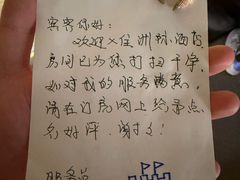 宾客你好：
欢迎入住洲际酒店，
房间已为您打扫干净，
如对我的服务满意，
请在订房网上给景点
名好评，谢谢了！
服务员